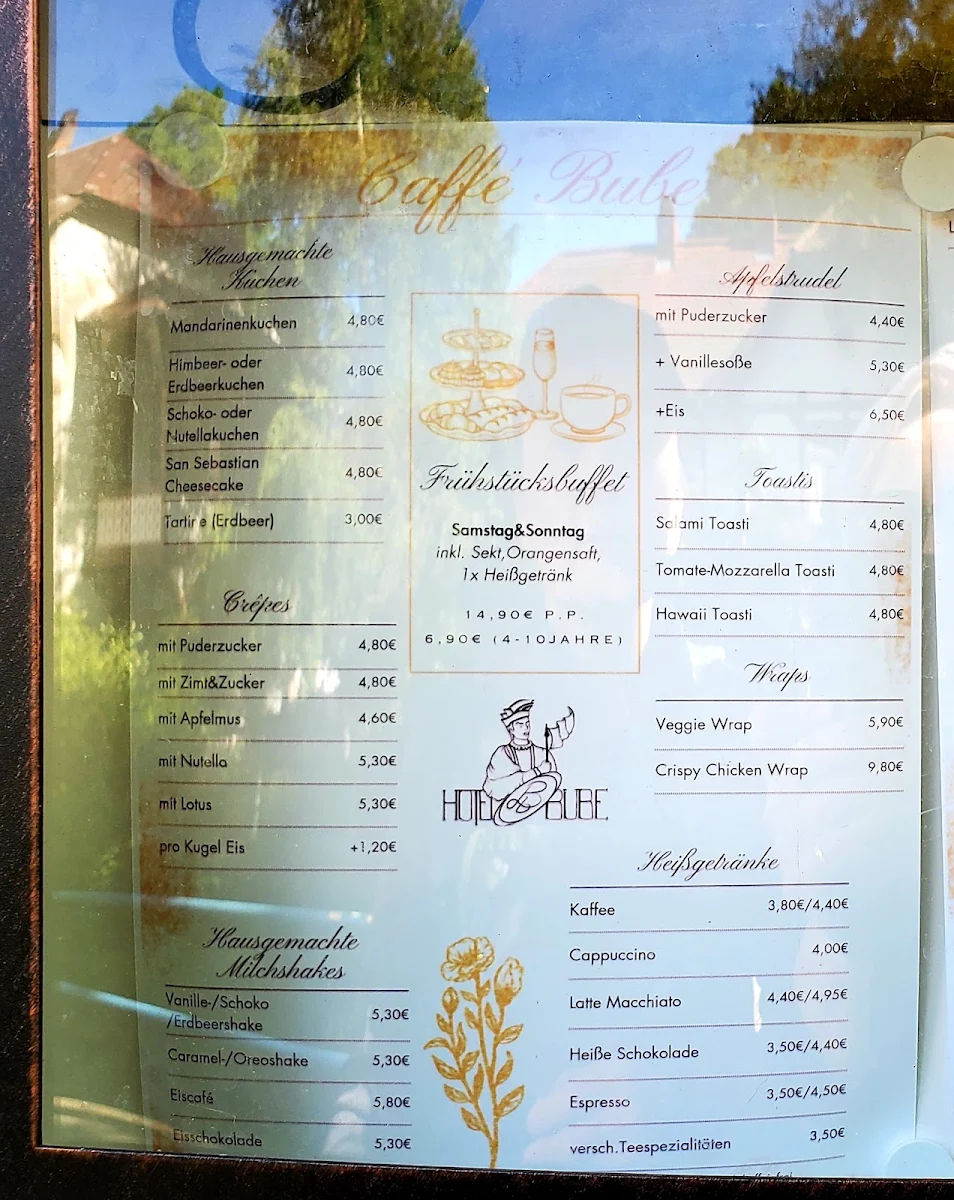 Caffé Bube
Hausgemachte
Kuchen
Mandarinenkuchen 4,80€
Himbeer- oder
Erdbeerkuchen 4,80€
Schoko- oder
Nutellakuchen 4,80€
San Sebastian
Cheesecake 4,80€
Tartine (Erdbeer) 3,00€
Crêpes
mit Puderzucker 4,80€
mit Zimt&Zucker 4,80€
mit Apfelmus 4,60€
mit Nutella 5,30€
mit Lotus 5,30€
pro Kugel Eis +1,20€
Hausgemachte
Milchshakes
Vanille-/Schoko
/Erdbeershake 5,30€
Caramel-/Oreoshake 5,30€
Eiscafé 5,80€
Eisschokolade 5,30€
Frühstücksbuffet
Samstag&Sonntag
inkl. Sekt,Orangensaft,
1x Heißgetränk
14,90€ P.P.
6,90€ (4-10JAHRE)
HOTEL BUBE
Apfelstrudel
mit Puderzucker 4,40€
+ Vanillesoße 5,30€
+Eis 6,50€
Toastis
Salami Toasti 4,80€
Tomate-Mozzarella Toasti 4,80€
Hawaii Toasti 4,80€
Wraps
Veggie Wrap 5,90€
Crispy Chicken Wrap 9,80€
Heißgetränke
Kaffee 3,80€/4,40€
Cappuccino 4,00€
Latte Macchiato 4,40€/4,95€
Heiße Schokolade 3,50€/4,40€
Espresso 3,50€/4,50€
versch.Teespezialitäten 3,50€